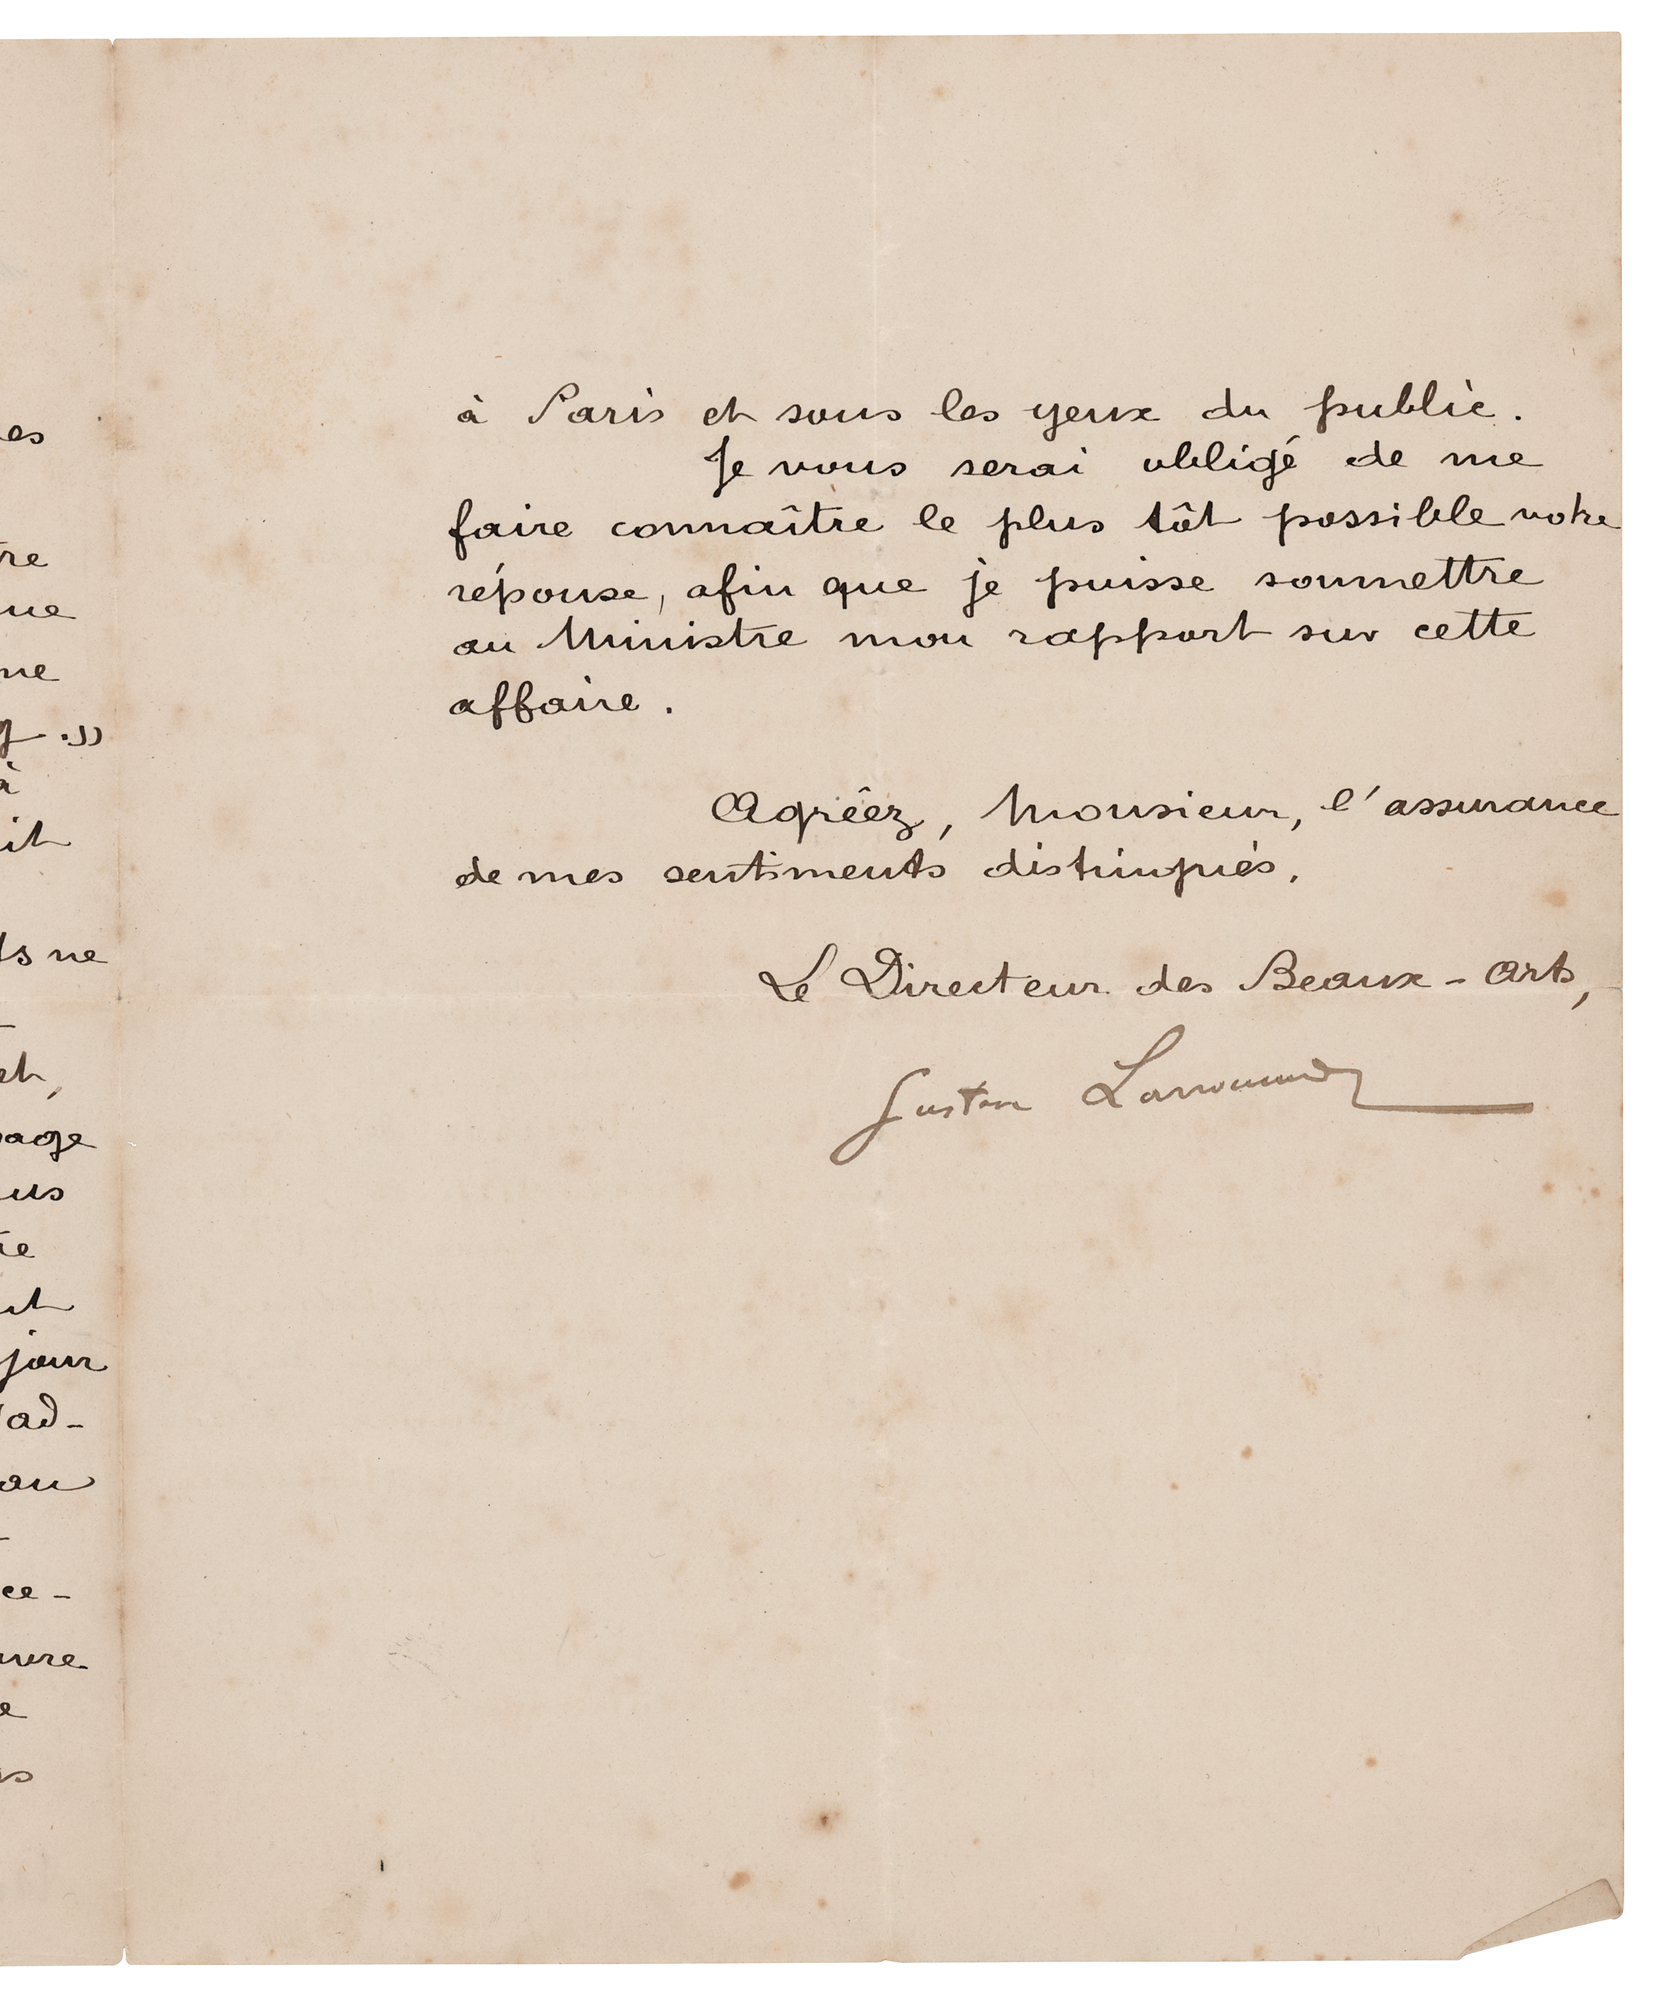 es
tre
que
me
à
it
ts ne
et,
page
us
te
ut
jour
l'ad-
au
ce-
uvre
e
s
à Paris et sous les yeux du public.
Je vous serai obligé de me
faire connaître le plus tôt possible votre
réponse, afin que je puisse soumettre
au Ministre mon rapport sur cette
affaire.
Agréez, Monsieur, l'assurance
de mes sentiments distingués.
Le Directeur des Beaux-Arts,
Gustave Larroumet